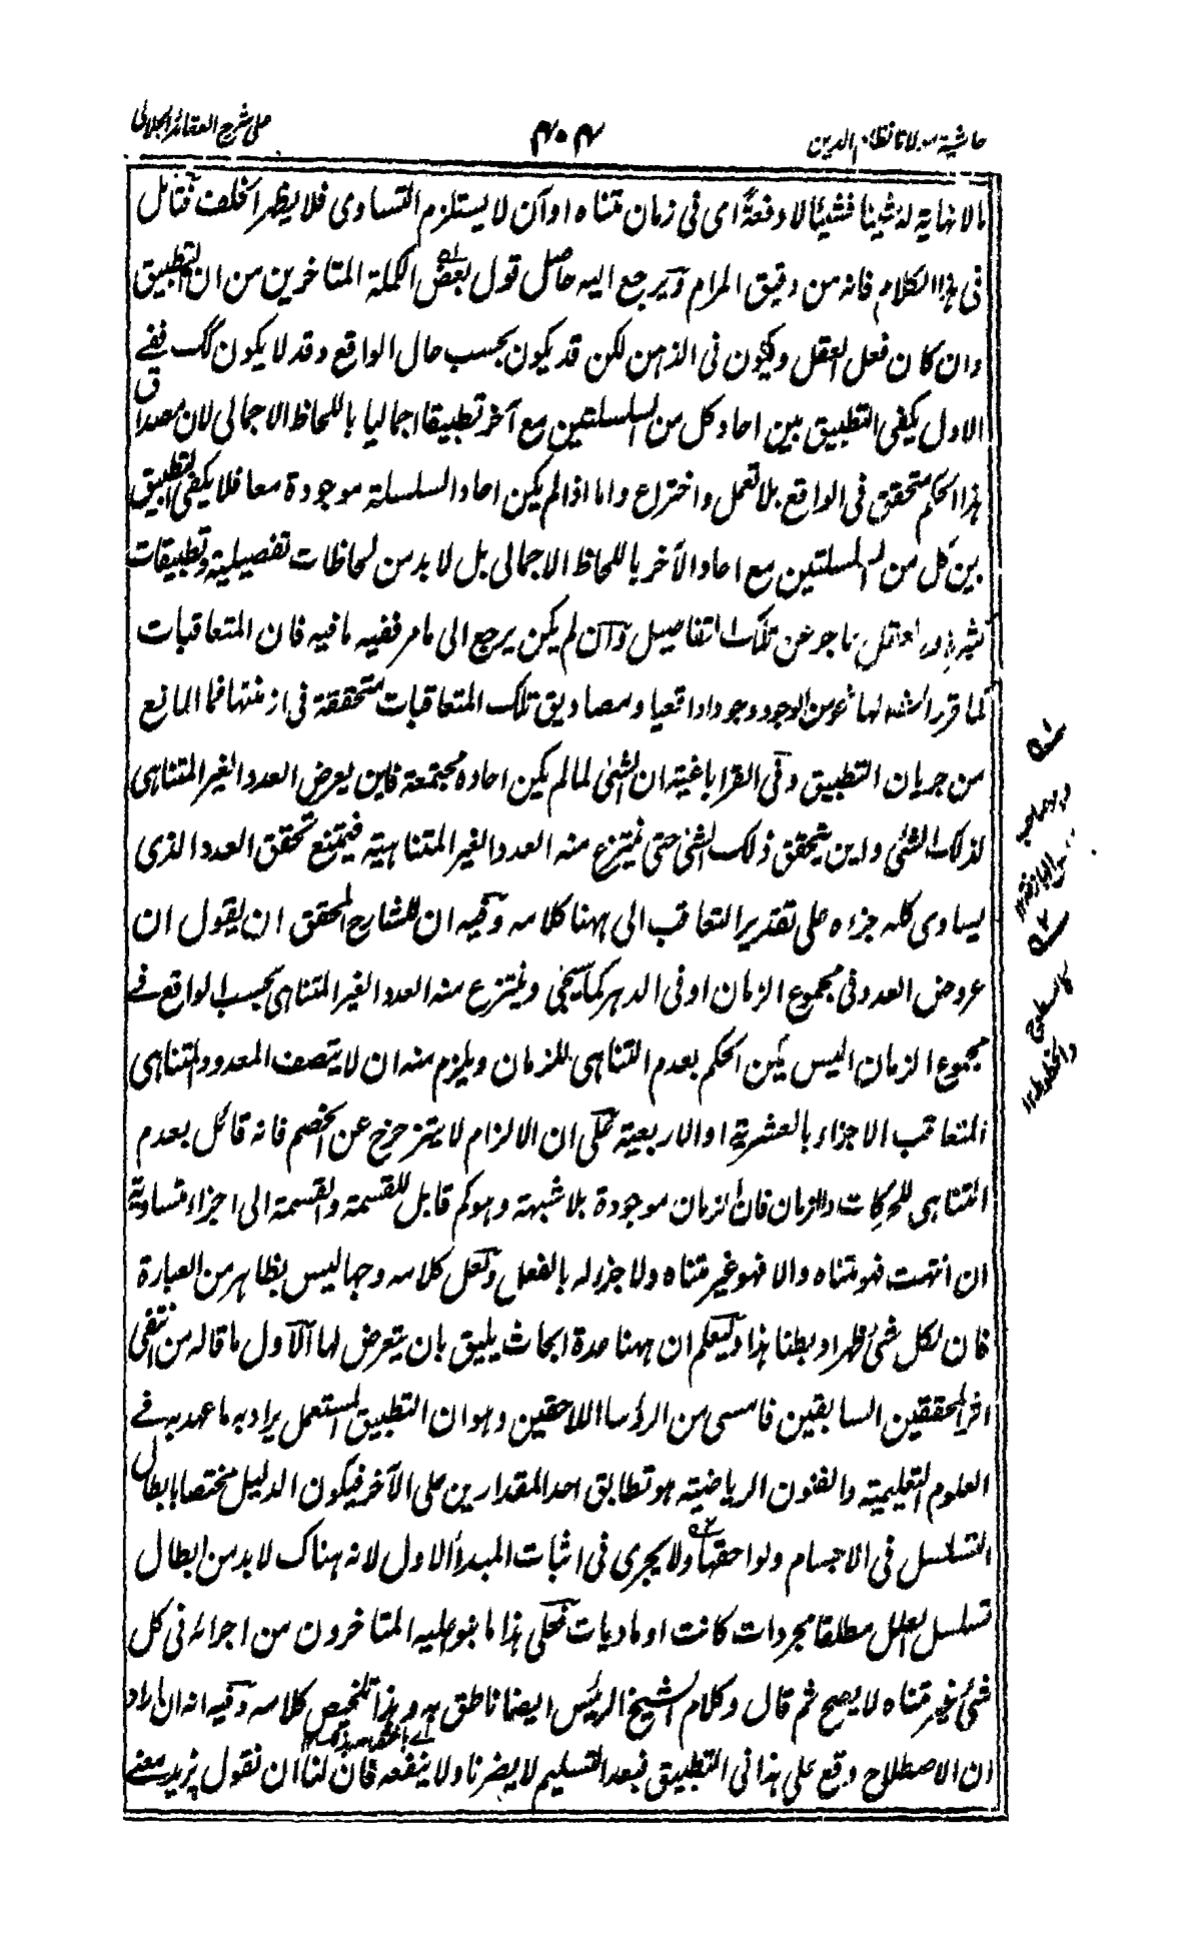 حاشية مولانا نظام الدين
٤٠٤
على شرح العقائد الجلالى
مالا نهاية له شيئا فشيئا لا دفعة اى فى زمان متناه او آن لا يستلزم التساوى فلا يظهر الخلف فتأمل
فى هذا الكلام فانه من دقيق المرام ويرجع اليه حاصل قول بعض الكملة المتاخرين من ان التطبيق
وان كان فعل العقل ويكون فى الذهن لكن قد يكون بحسب حال الواقع وقد لا يكون كك ففى
الاول يكفى التطبيق بين احاد كل من السلسلتين مع آخر تطبيقا اجماليا باللحاظ الاجمالى لان مصداق
هذا الحكم متحقق فى الواقع بلا تعمل واختراع واما اذا لم يكن احاد السلسلة موجودة معا فلا يكفى التطبيق
بين كل من السلسلتين مع احاد الآخر باللحاظ الاجمالى بل لا بد من لحاظات تفصيلية وتطبيقات
العقل عاجز عن تلك التفاصيل وان لم يكن يرجع الى ما مر ففيه ما فيه فان المتعاقبات
كما قرر لها نحو من الوجود وجودا واقعيا ومصاديق تلك المتعاقبات متحققة فى ازمنتها فما المانع
من جريان التطبيق وفى القراباغية ان الشئ لما لم يكن احاده مجتمعة فاين يعرض العدد الغير المتناهى
لذلك الشئ واين يتحقق ذلك الشئ حتى ينتزع منه العدد الغير المتناهية فيمتنع تحقق العدد الذى
يساوى كله جزءه على تقدير التعاقب الى ههنا كلامه وفيه ان للشارح المحقق ان يقول ان
عروض العدد فى مجموع الزمان او فى الدهر كما سيجئ وينتزع منه العدد الغير المتناهى بحسب الواقع فى
مجموع الزمان اليس يمكن الحكم بعدم التناهى للزمان ويلزم منه ان لا يتصف المعدود المتناهى
المتعاقب الاجزاء بالعشرية او الاربعية على ان الالزام لا يتزحزح عن الخصم فانه قائل بعدم
التناهى للحركات والزمان فان الزمان موجودة بلا شبهة وهو كم قابل للقسمة والقسمة الى اجزاء متساوية
ان انتهت فهو متناه والا فهو غير متناه ولا جزء له بالفعل ولعل كلامه وجها ليس بظاهر من العبارة
فان لكل شئ ظهرا وبطنا هذا وليعلم ان ههنا عدة ابحاث يليق بان يتعرض لها الاول ما قاله من
المحققين السابقين من الرؤسا اللاحقين وهو ان التطبيق المستعمل يراد به ما عهد به فى
العلوم التعليمية والفنون الرياضية هو تطابق احد المقدارين على الآخر فيكون الدليل مختصا بابطال
التسلسل فى الاجسام ولواحقها ولا يجرى فى اثبات المبدأ الاول لانه هناك لا بد من ابطال
تسلسل العلل مطلقا مجردات كانت او ماديات فعلى هذا ما بنو عليه المتاخرون من اجرائه فى كل
شئ غير متناه لا يصح ثم قال وكلام الشيخ الرئيس ايضا ناطق به وهذا تلخيص كلامه وفيه انه ان اراد
ان الاصطلاح وقع على هذا فى التطبيق فبعد التسليم لا يضرنا ولا ينفعه فان لنا ان نقول نريد معنى
كالسطوح
والخطوط ١٢